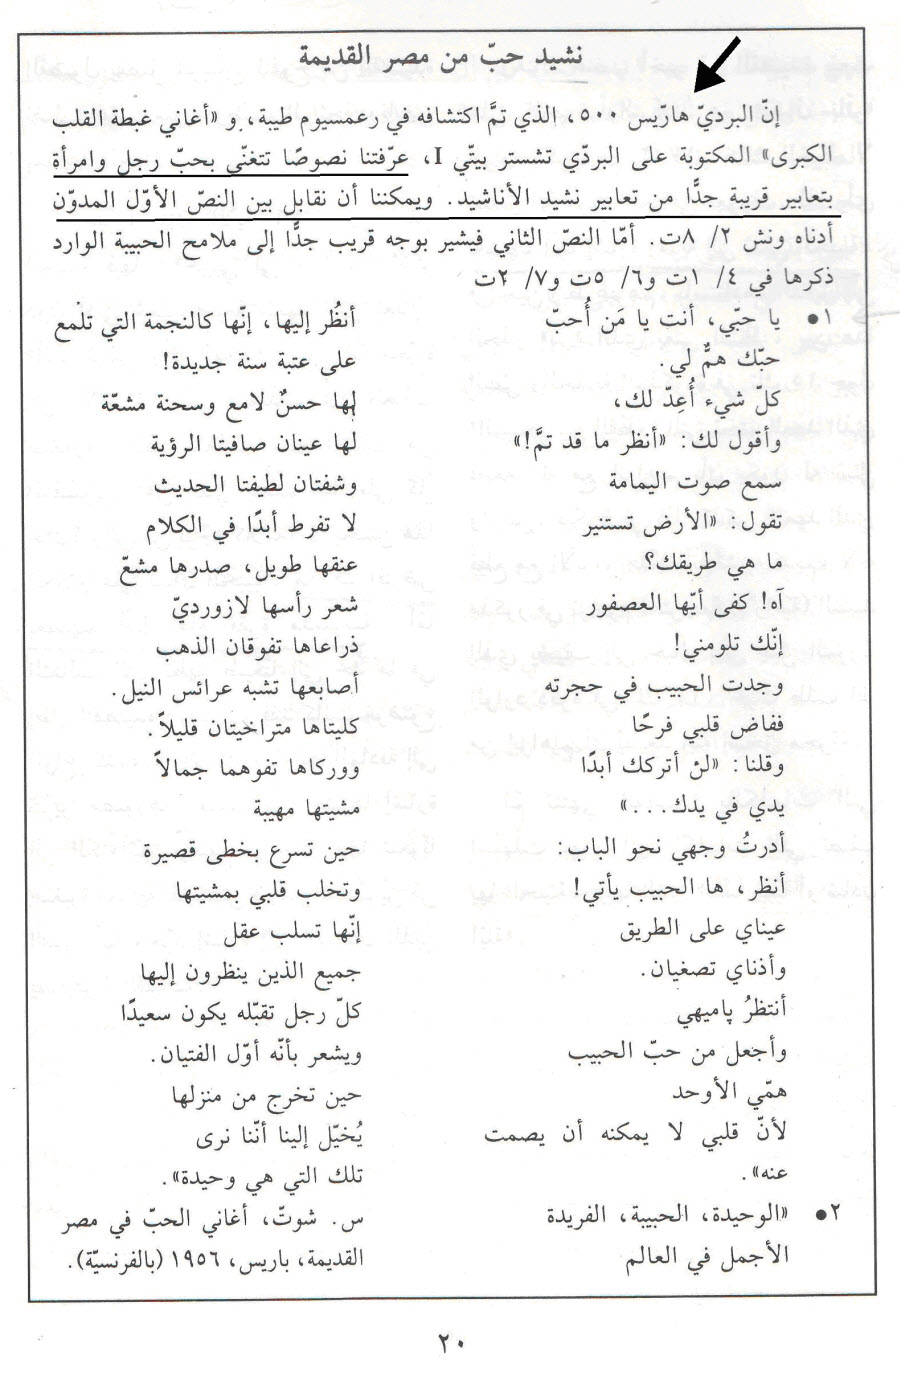 نشيد حبّ من مصر القديمة
إنّ البرديّ هارّيس ٥٠٠، الذي تمَّ اكتشافه في رعمسيوم طيبة، و «أغاني غبطة القلب
الكبرى» المكتوبة على البردّي تشستر بيتّي I، عرّفتنا نصوصًا تتغنّي بحبّ رجل وامرأة
بتعابير قريبة جدًّا من تعابير نشيد الأناشيد. ويمكننا أن نقابل بين النصّ الأوّل المدوّن
أدناه ونش ٢/ ٨ت. أمّا النصّ الثاني فيشير بوجه قريب جدًّا إلى ملامح الحبيبة الوارد
ذكرها في ٤/ ١ت و٦/ ٥ت و٧/ ٢ت
١● يا حبّي، أنت يا مَن أُحبّ
حبّك همٌّ لي.
كلّ شيء أُعِدّ لك،
وأقول لك: «أنظر ما قد تمَّ!»
سمع صوت اليمامة
تقول: «الأرض تستنير
ما هي طريقك؟
آه! كفى أيّها العصفور
إنّك تلومني!
وجدت الحبيب في حجرته
ففاض قلبي فرحًا
وقلنا: «لن أتركك أبدًا
يدي في يدك...»
أدرتُ وجهي نحو الباب:
أنظر، ها الحبيب يأتي!
عيناي على الطريق
وأذناي تصغيان.
أنتظرُ پاميهي
وأجعل من حبّ الحبيب
همّي الأوحد
لأنّ قلبي لا يمكنه أن يصمت
عنه».
٢● «الوحيدة، الحبيبة، الفريدة
الأجمل في العالم
أنظُر إليها، إنّها كالنجمة التي تلمع
على عتبة سنة جديدة!
لها حسنٌ لامع وسحنة مشعّة
لها عينان صافيتا الرؤية
وشفتان لطيفتا الحديث
لا تفرط أبدًا في الكلام
عنقها طويل، صدرها مشعّ
شعر رأسها لازورديّ
ذراعاها تفوقان الذهب
أصابعها تشبه عرائس النيل.
كليتاها متراخيتان قليلاً.
ووركاها تفوهما جمالاً
مشيتها مهيبة
حين تسرع بخطى قصيرة
وتخلب قلبي بمشيتها
إنّها تسلب عقل
جميع الذين ينظرون إليها
كلّ رجل تقبّله يكون سعيدًا
ويشعر بأنّه أوّل الفتيان.
حين تخرج من منزلها
يُخيّل إلينا أنّنا نرى
تلك التي هي وحيدة».
س. شوتّ، أغاني الحبّ في مصر
القديمة، باريس، ١٩٥٦ (بالفرنسيّة).
٢٠